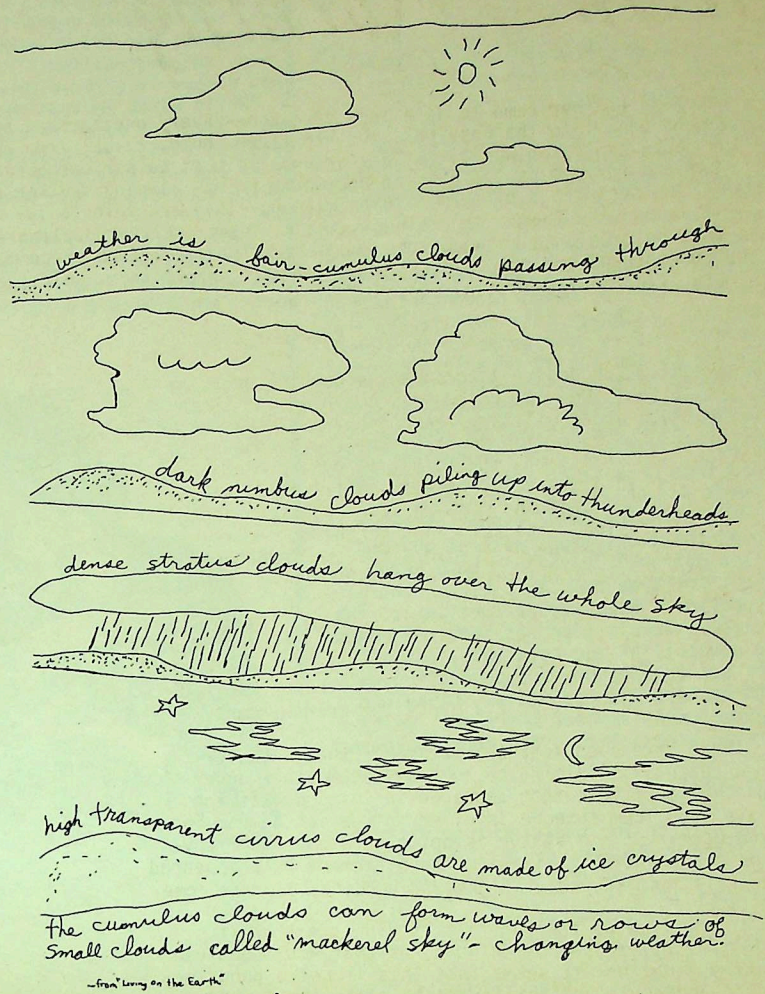 weather is fair - cumulus clouds passing through
dark nimbus clouds piling up into thunderheads
dense stratus clouds hang over the whole sky
high transparent cirrus clouds are made of ice crystals
the cumulus clouds can form waves or rows of
small clouds called "mackerel sky" - changing weather.
- from "Living on the Earth"